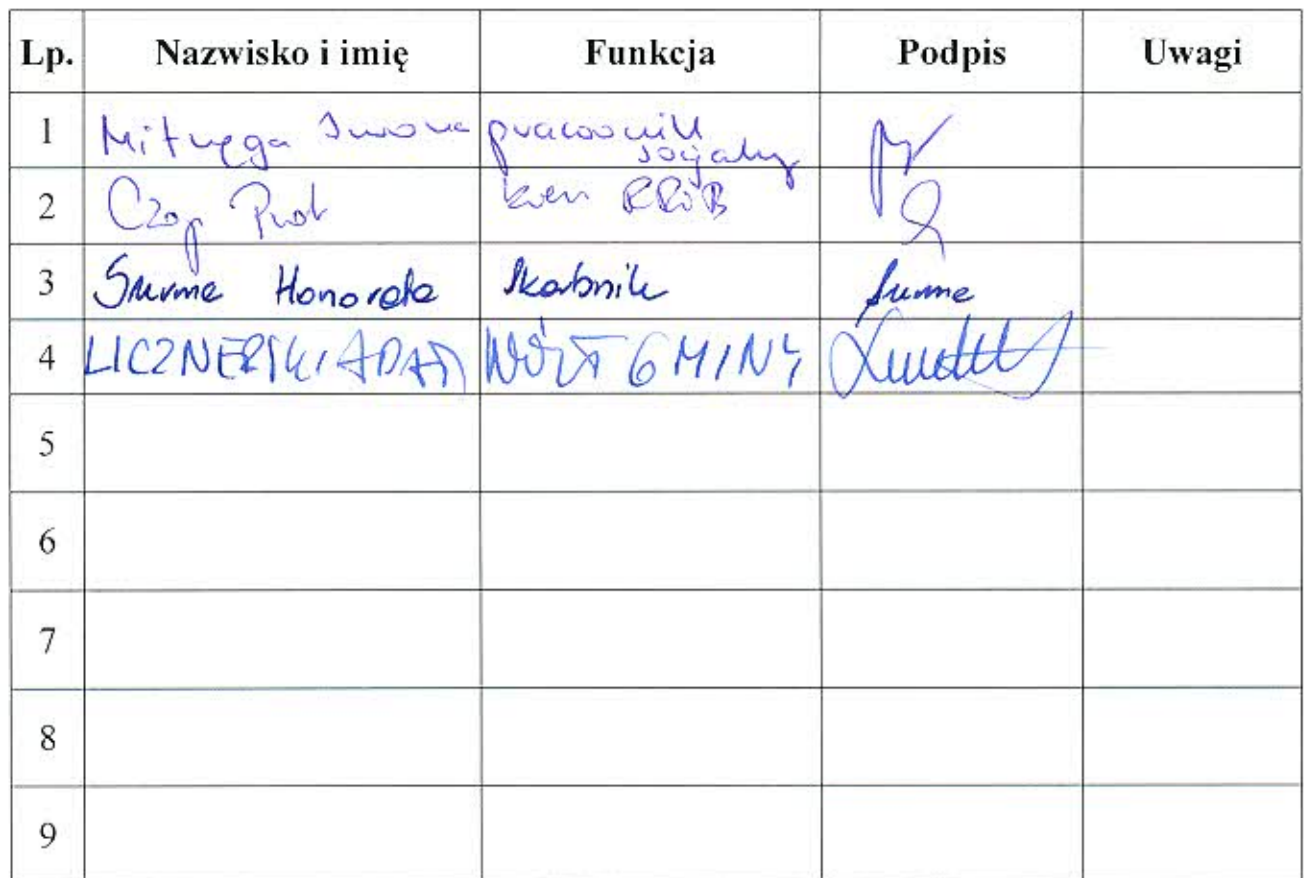 Lp. Nazwisko i imię Funkcja Podpis Uwagi
1 Mitręga Iwona pracownik socjalny
2 Czop Piotr
3 Honorata Skarbnik
4 LICZNERSKI ADAM WÓJT GMINY
5
6
7
8
9